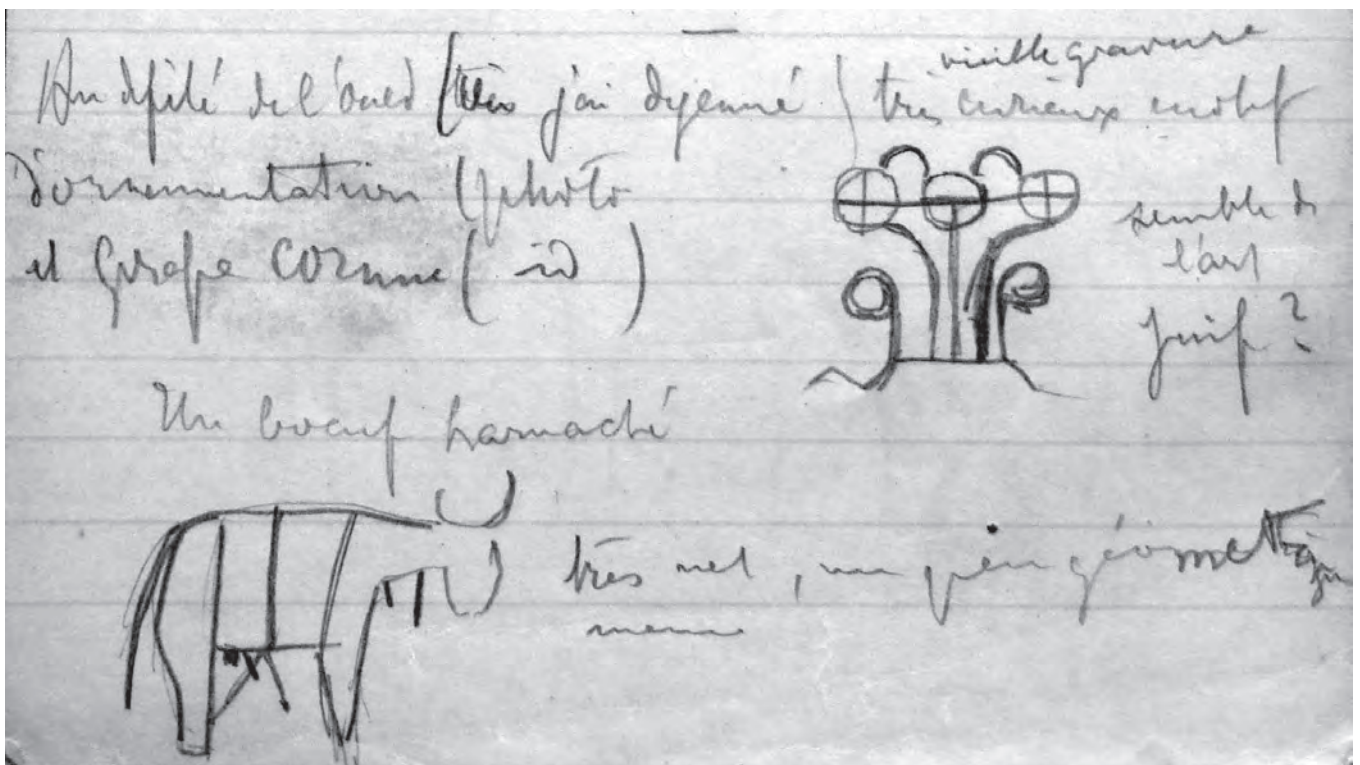 vieille gravure
Au défilé de l'oued ( j'ai déjeuné ) très curieux motif
d'ornementation (photo
et Girafe cornue ( id )
semble de
l'art
juif ?
Un boeuf harnaché
très net, un peu géométrique
même